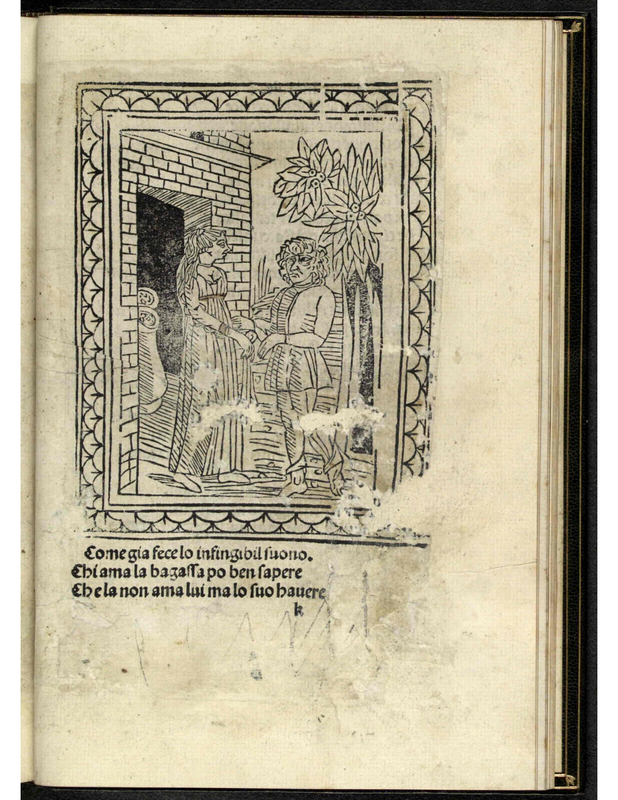 Come gia fece lo infingibil suono.
Chi ama la bagaſſa po ben ſapere
Che la non ama lui ma lo ſuo hauere
k